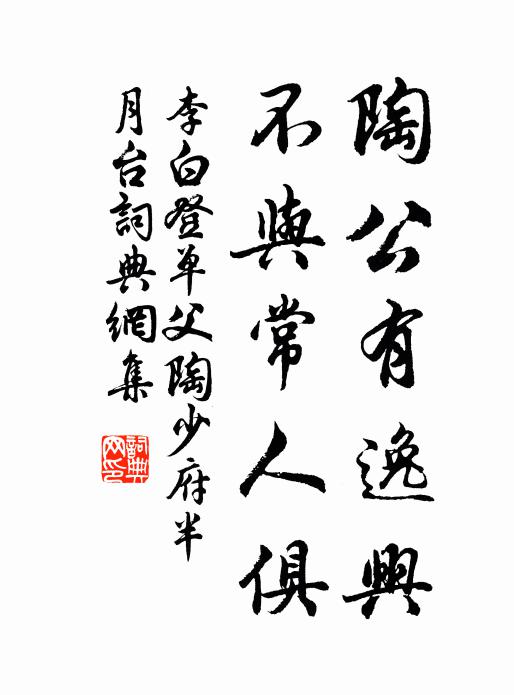 陶公有逸興
不與常人俱
李白登單父陶少府半
月台詞典網集
詞典網印